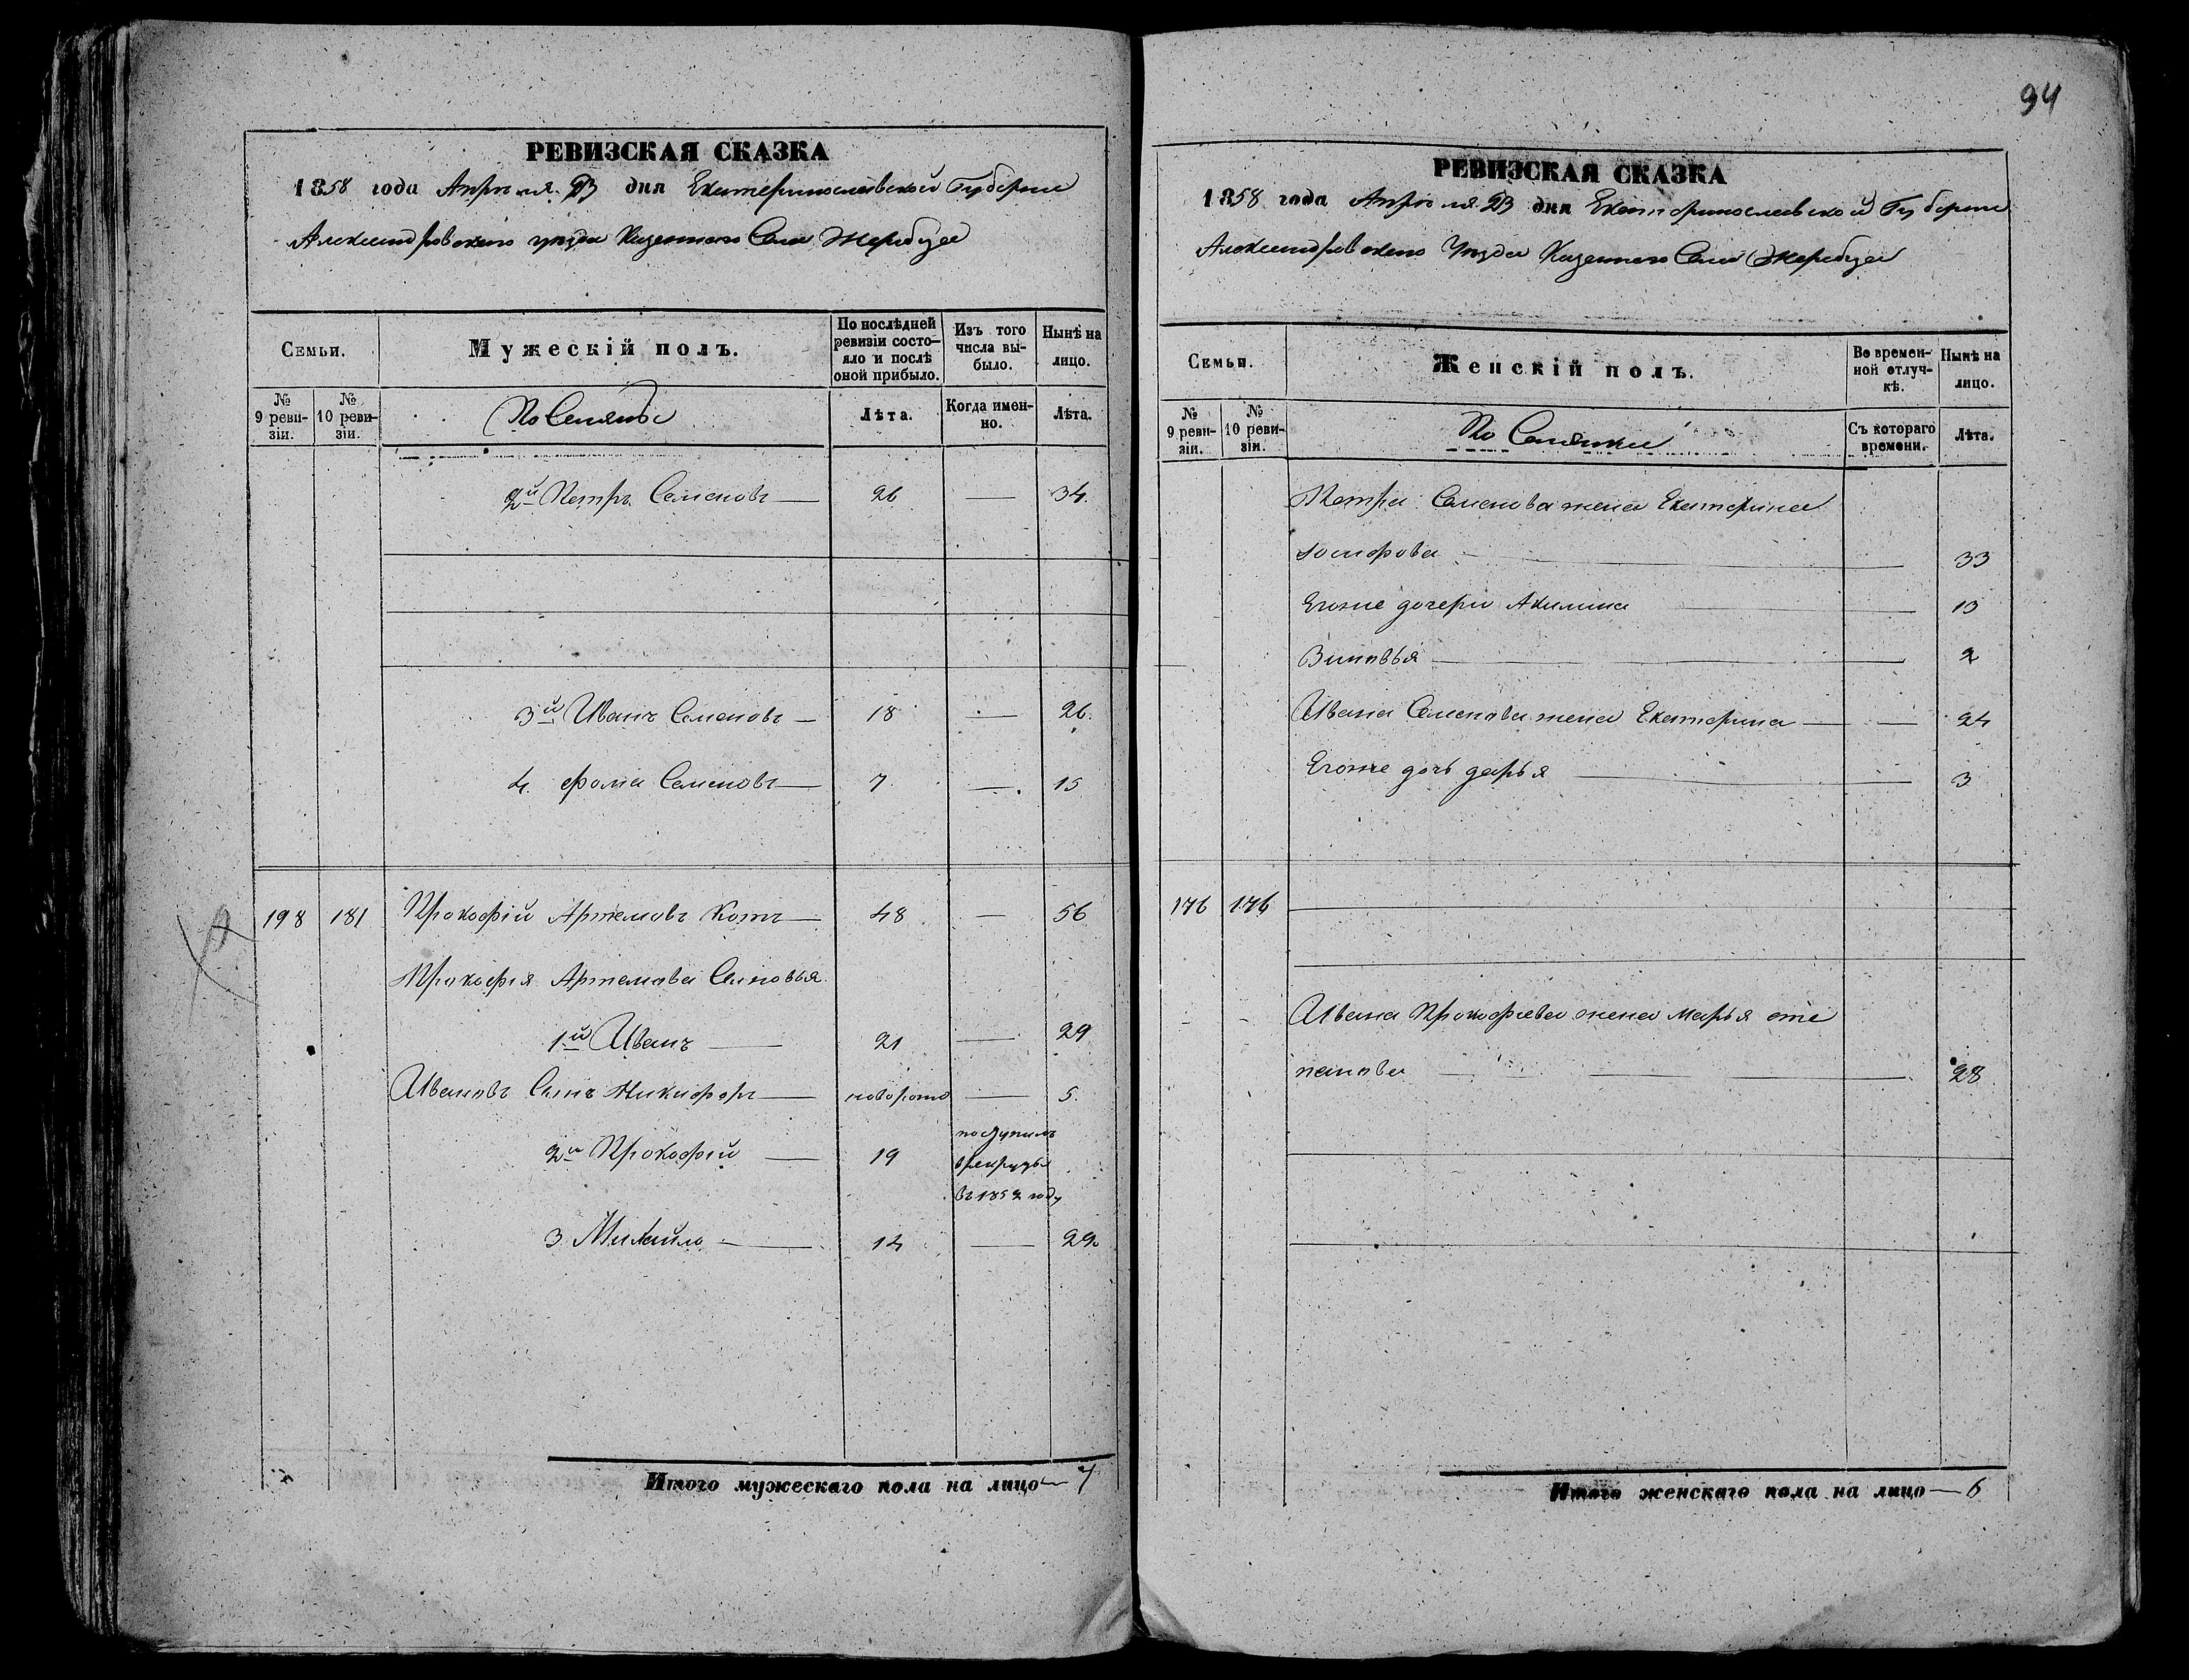 94
РЕВИЗСКАЯ СКАЗКА
1858 года Апреля 23 дня Екатеринославской Губернии
Александровского уезда Казенного Села Жеребца
Семьи.
Мужескій полъ.
По послѣдней ревизіи состояло и послѣ оной прибыло.
Изъ того числа выбыло.
Нынѣ на лицо.
№ 9 ревизіи.
№ 10 ревизіи.
Поселяне
Лѣта.
Когда именно.
Лѣта.
2й Петръ Семеновъ — 26 — 34.
3й Иванъ Семеновъ — 18 — 26.
4. Фома Семеновъ — 7 — 15
198 181 Прокофій Артемовъ Котъ — 48 — 56
Прокофія Артемова Сыновья
1й Иванъ — 21 — 29
Ивановъ Сынъ Никифоръ — новорожд — 5.
2й Прокофій — 19 поступилъ
в рекруты
въ 1852 году
3 Михайло — 14 — 29
Итого мужескаго пола на лицо — 7
РЕВИЗСКАЯ СКАЗКА
1858 года Апреля 23 дня Екатеринославской Губернии
Александровского Уезда Казенного Села Жеребца
Семьи.
Женскій полъ.
Во временной отлучкѣ.
Нынѣ на лицо.
№ 9 ревизіи.
№ 10 ревизіи.
Поселянки
Съ котораго времени.
Лѣта.
Петра Семенова жена Екатерина
— — 33
Егоже дочери Акилина — — 13
Зиновья — — 2
Ивана Семенова жена Екатерина — — 24
Егоже дочь дарья — — 3
176 176
- - Ивана Прокофиева жена Марья сте
панова — — — 28
Итого женскаго пола на лицо — 6